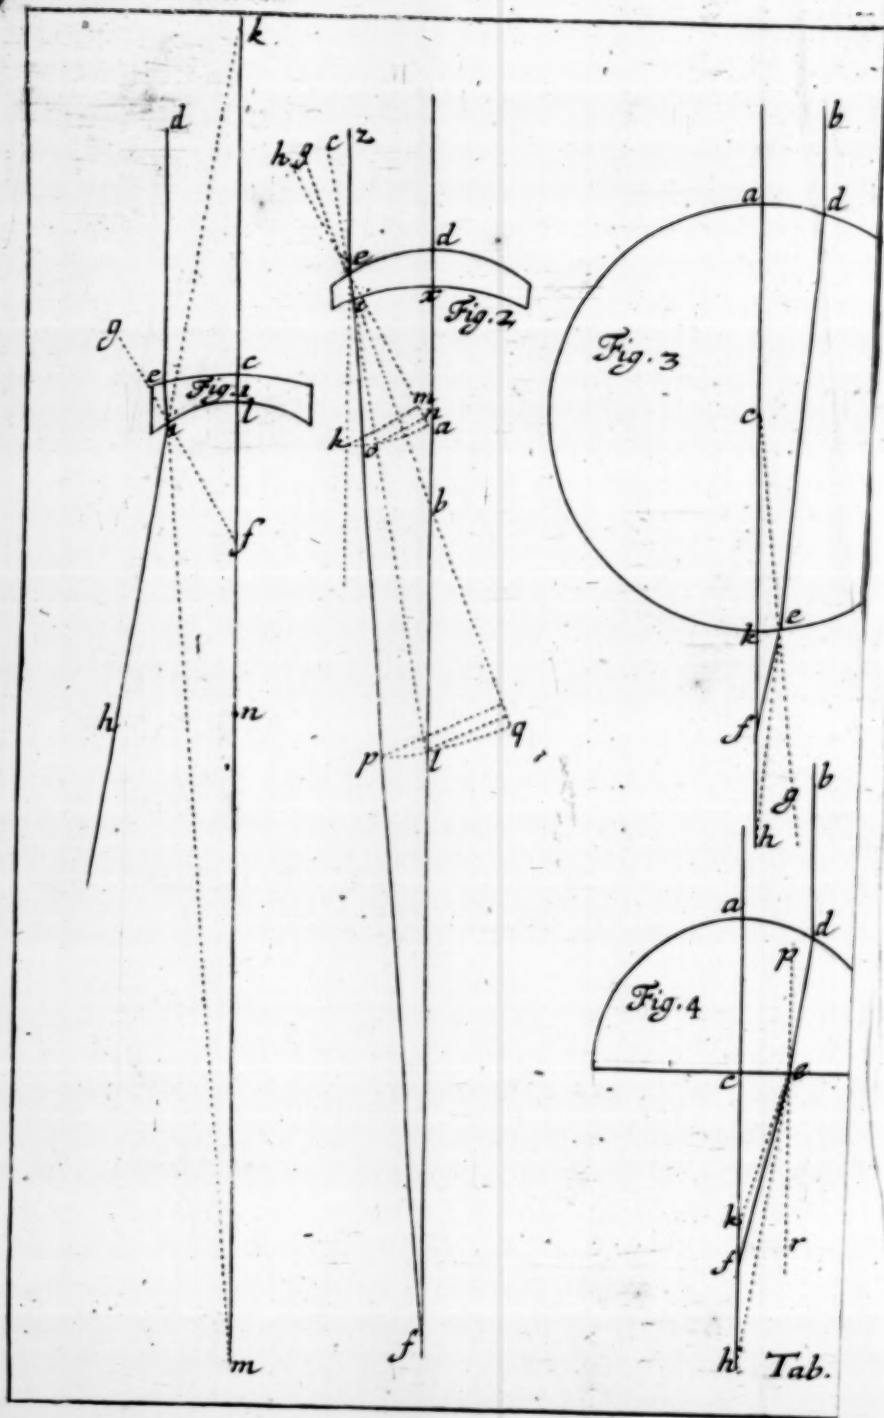 k
d
g
e
c
Fig. 1
l
f
h
n
m
h g c z
e
d
x
Fig. 2
m
n
a
k
o
b
p
l
q
f
b
a
d
Fig. 3
c
k
e
f
g
h
b
a
d
p
Fig. 4
c
e
k
f
r
h
Tab.